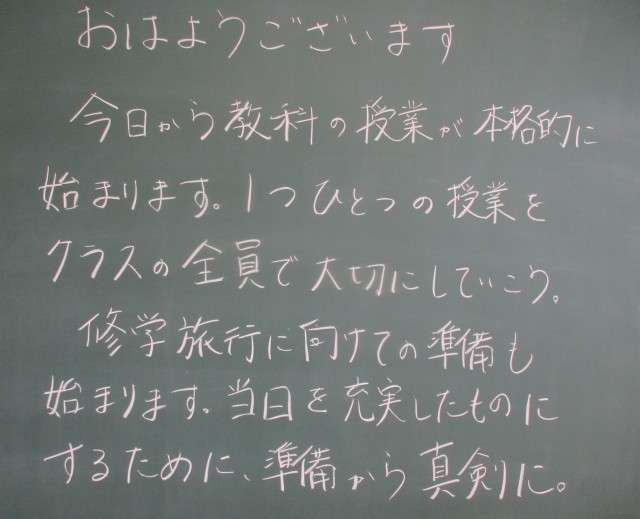 おはようございます
今日から教科の授業が本格的に
始まります。1つひとつの授業を
クラスの全員で大切にしていこう。
修学旅行に向けての準備も
始まります。当日を充実したものに
するために、準備から真剣に。